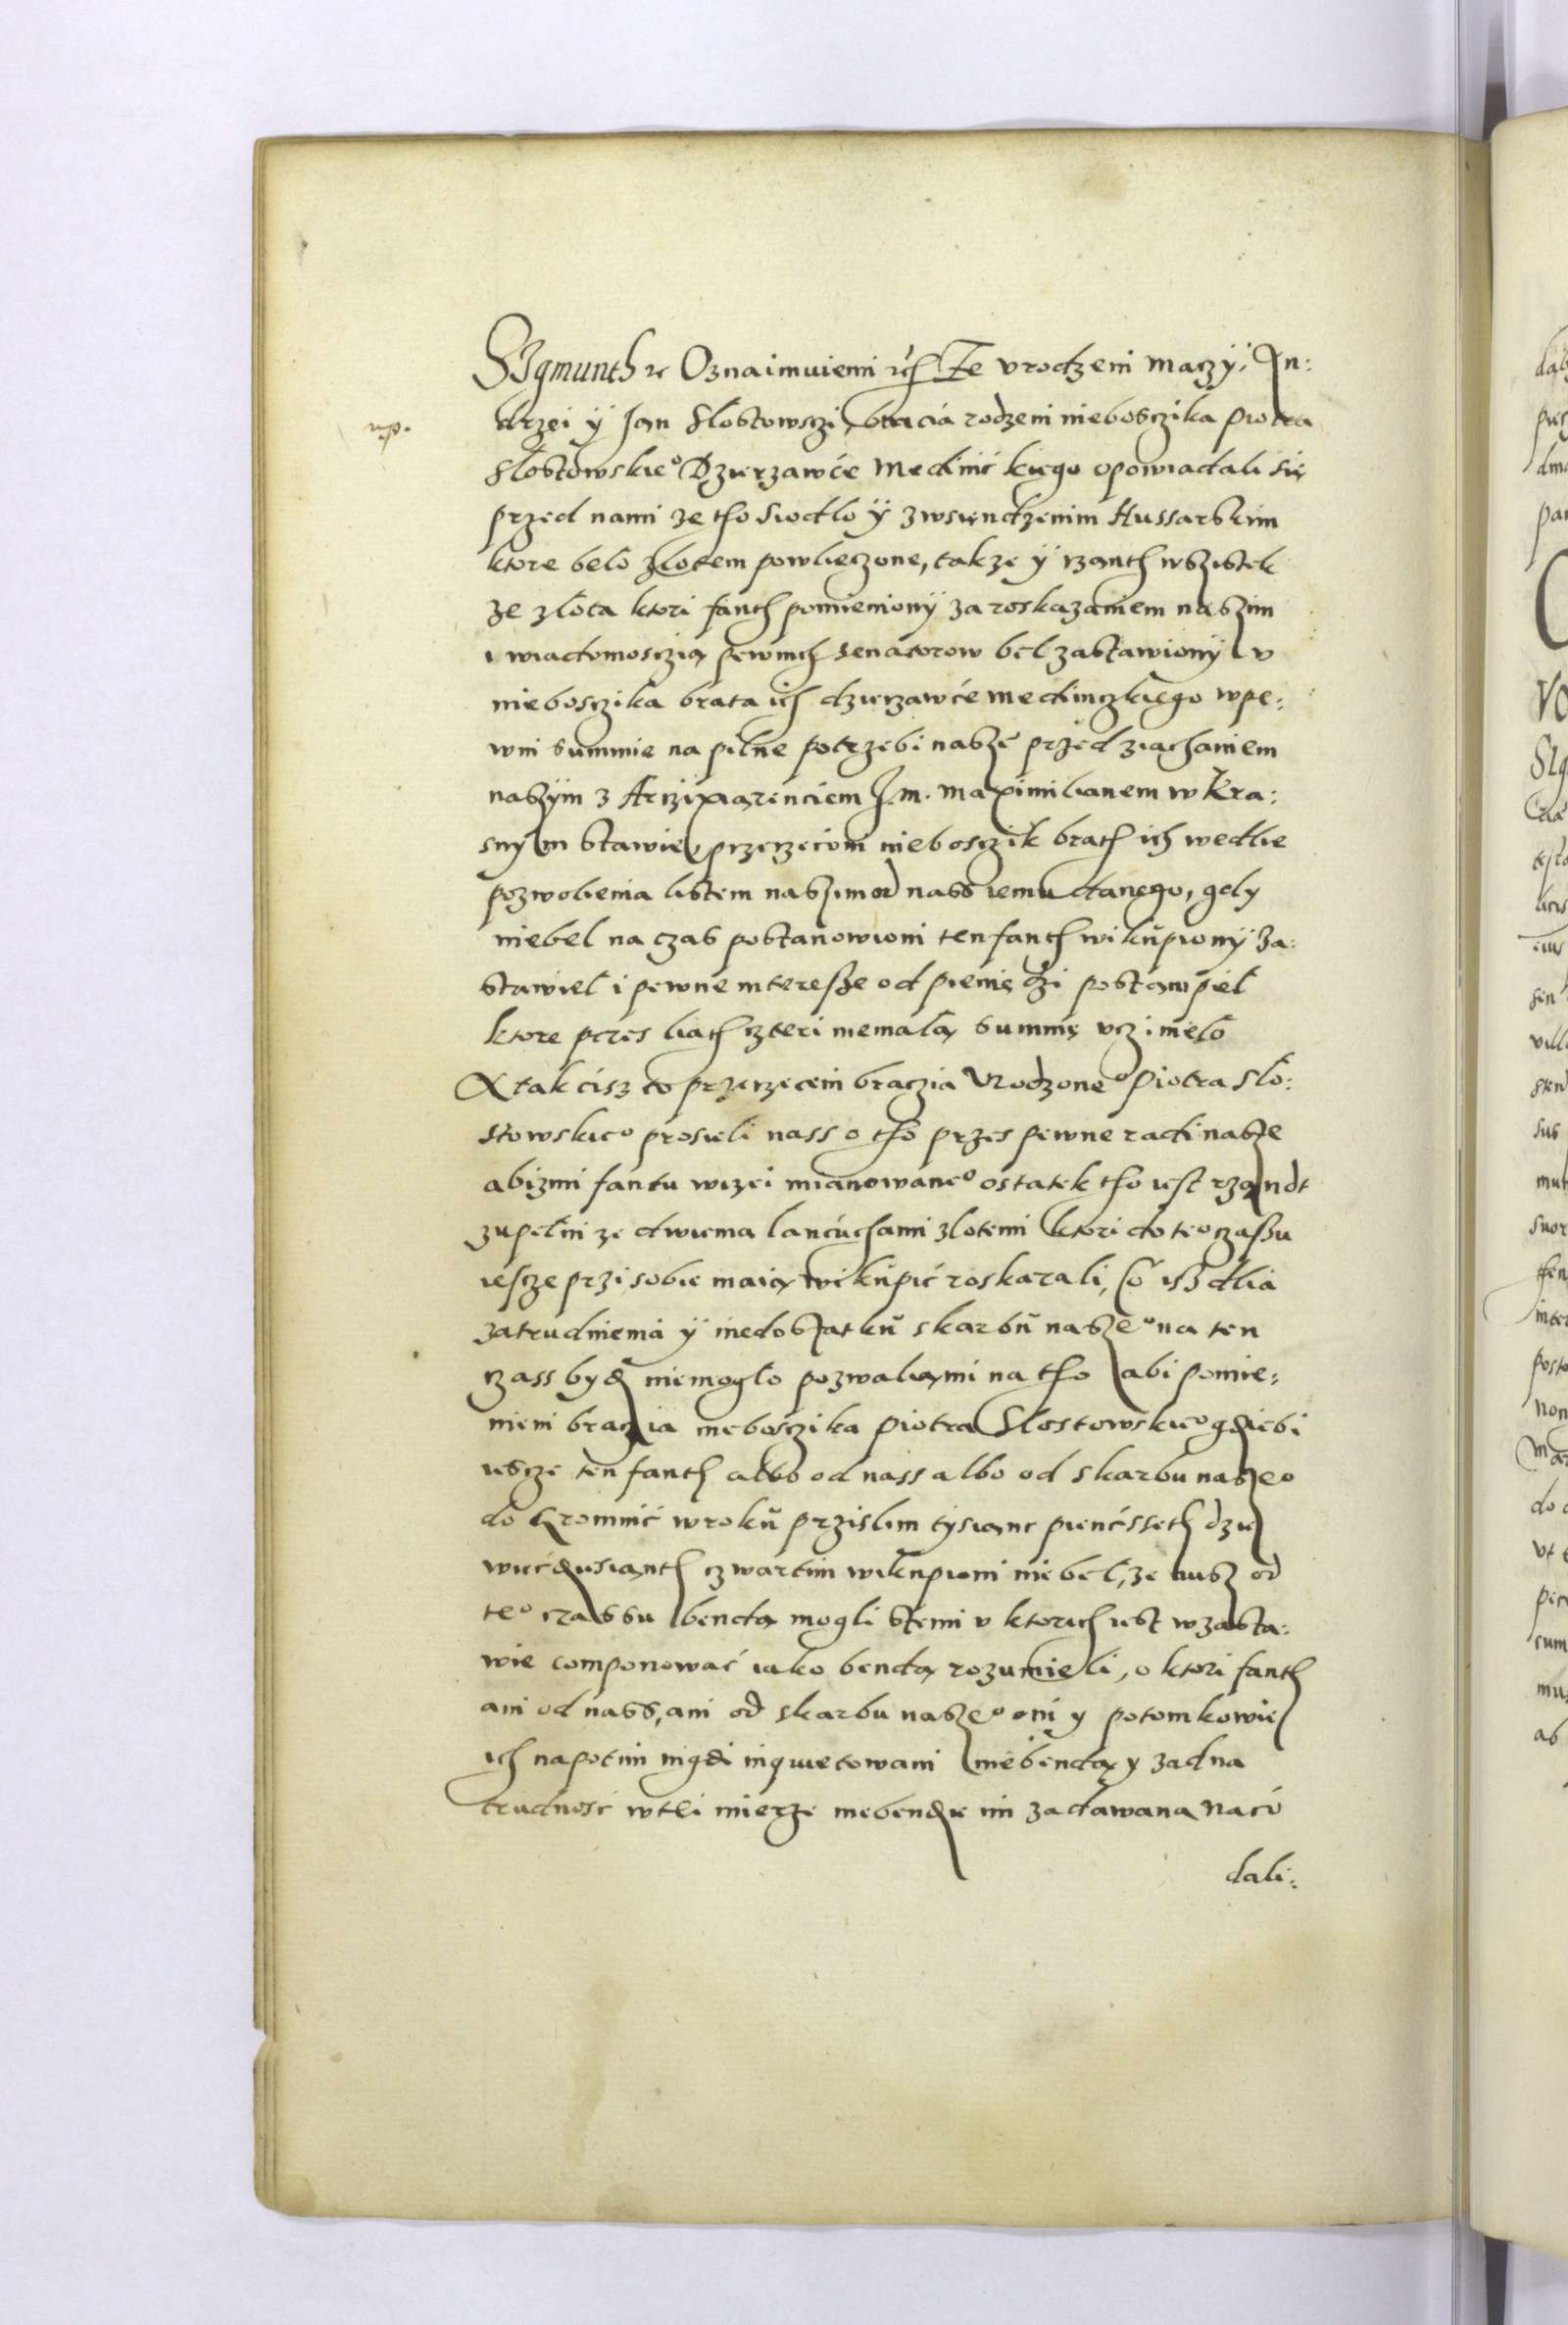 Sigmunth etc Oznaimuiemi etc Ze vrodzeni Maczÿ, An:
drzei ÿ Jan Slostowsczi, bracia rodzeni niebosczika Piotra
Slostowskie° Dzierzawce Medinickiego opowiadali się
przed nami ze tho siodlo ÿ zwsiendzenim Hussarskim
ktore belo zlotem powleczone, takze ÿ rzanth wszistek
ze zlota ktori fanth pomienionÿ za roskazaniem naszim
i wiadomosczią pewnich senatorow bel zastawionÿ v
niebosczika brata ich dzierzawce medinczkiego wpe:
wni summie na pilne potrzebi nasze przed ziachaniem
naszÿm z Arczixiązenciem J. m. Maximilianem w Kra:
snÿm stawie, przerzeconi niebosczik brath ich wedlie
pozwolienia listem naszim od nass iemu danego, gdy
niebel na czas postanowioni ten fanth wikupionÿ za:
stawiel i pewne interesse od pieniędzi postampiel
ktore przes liath czteri niemalą summę vczinielo
A tak cisz to przerzeceni braczia Vrodzone° Piotra Slo:
stowskie° prosieli nass o tho przes pewne radi nasze
abizmi fantu wizei mianowane° ostatek tho iest rzandt
zupelni ze dwiema lancuchami zlotemi ktori do te° czassu
iescze przi sobie maią wikupić roskazali, Co isz dlia
zatrudnienia ÿ niedostatku skarbu nasze° na ten
czass bydz niemoglo pozwaliami na tho abi pomie:
nieni braczia niebosczika Piotra Slostowskie° gdziebi
iescze ten fanth albo od nass albo od skarbu nasze°
do Gromnić wroku przislim tysianc piencsseth dzie
wiećdziesianth czwartim wikupioni niebel, ze iusz od
te° czassu bendą mogli stemi v ktorich iest wzasta:
wie componować iako bendą rozumieli, o ktori fanth
ani od nass, ani od skarbu nasze° oni y potomkowie
ich napotim nigdi inquietowani niebendą y zadna
trudnosć wtei mierze niebendzie im zadawana Naco
dali: